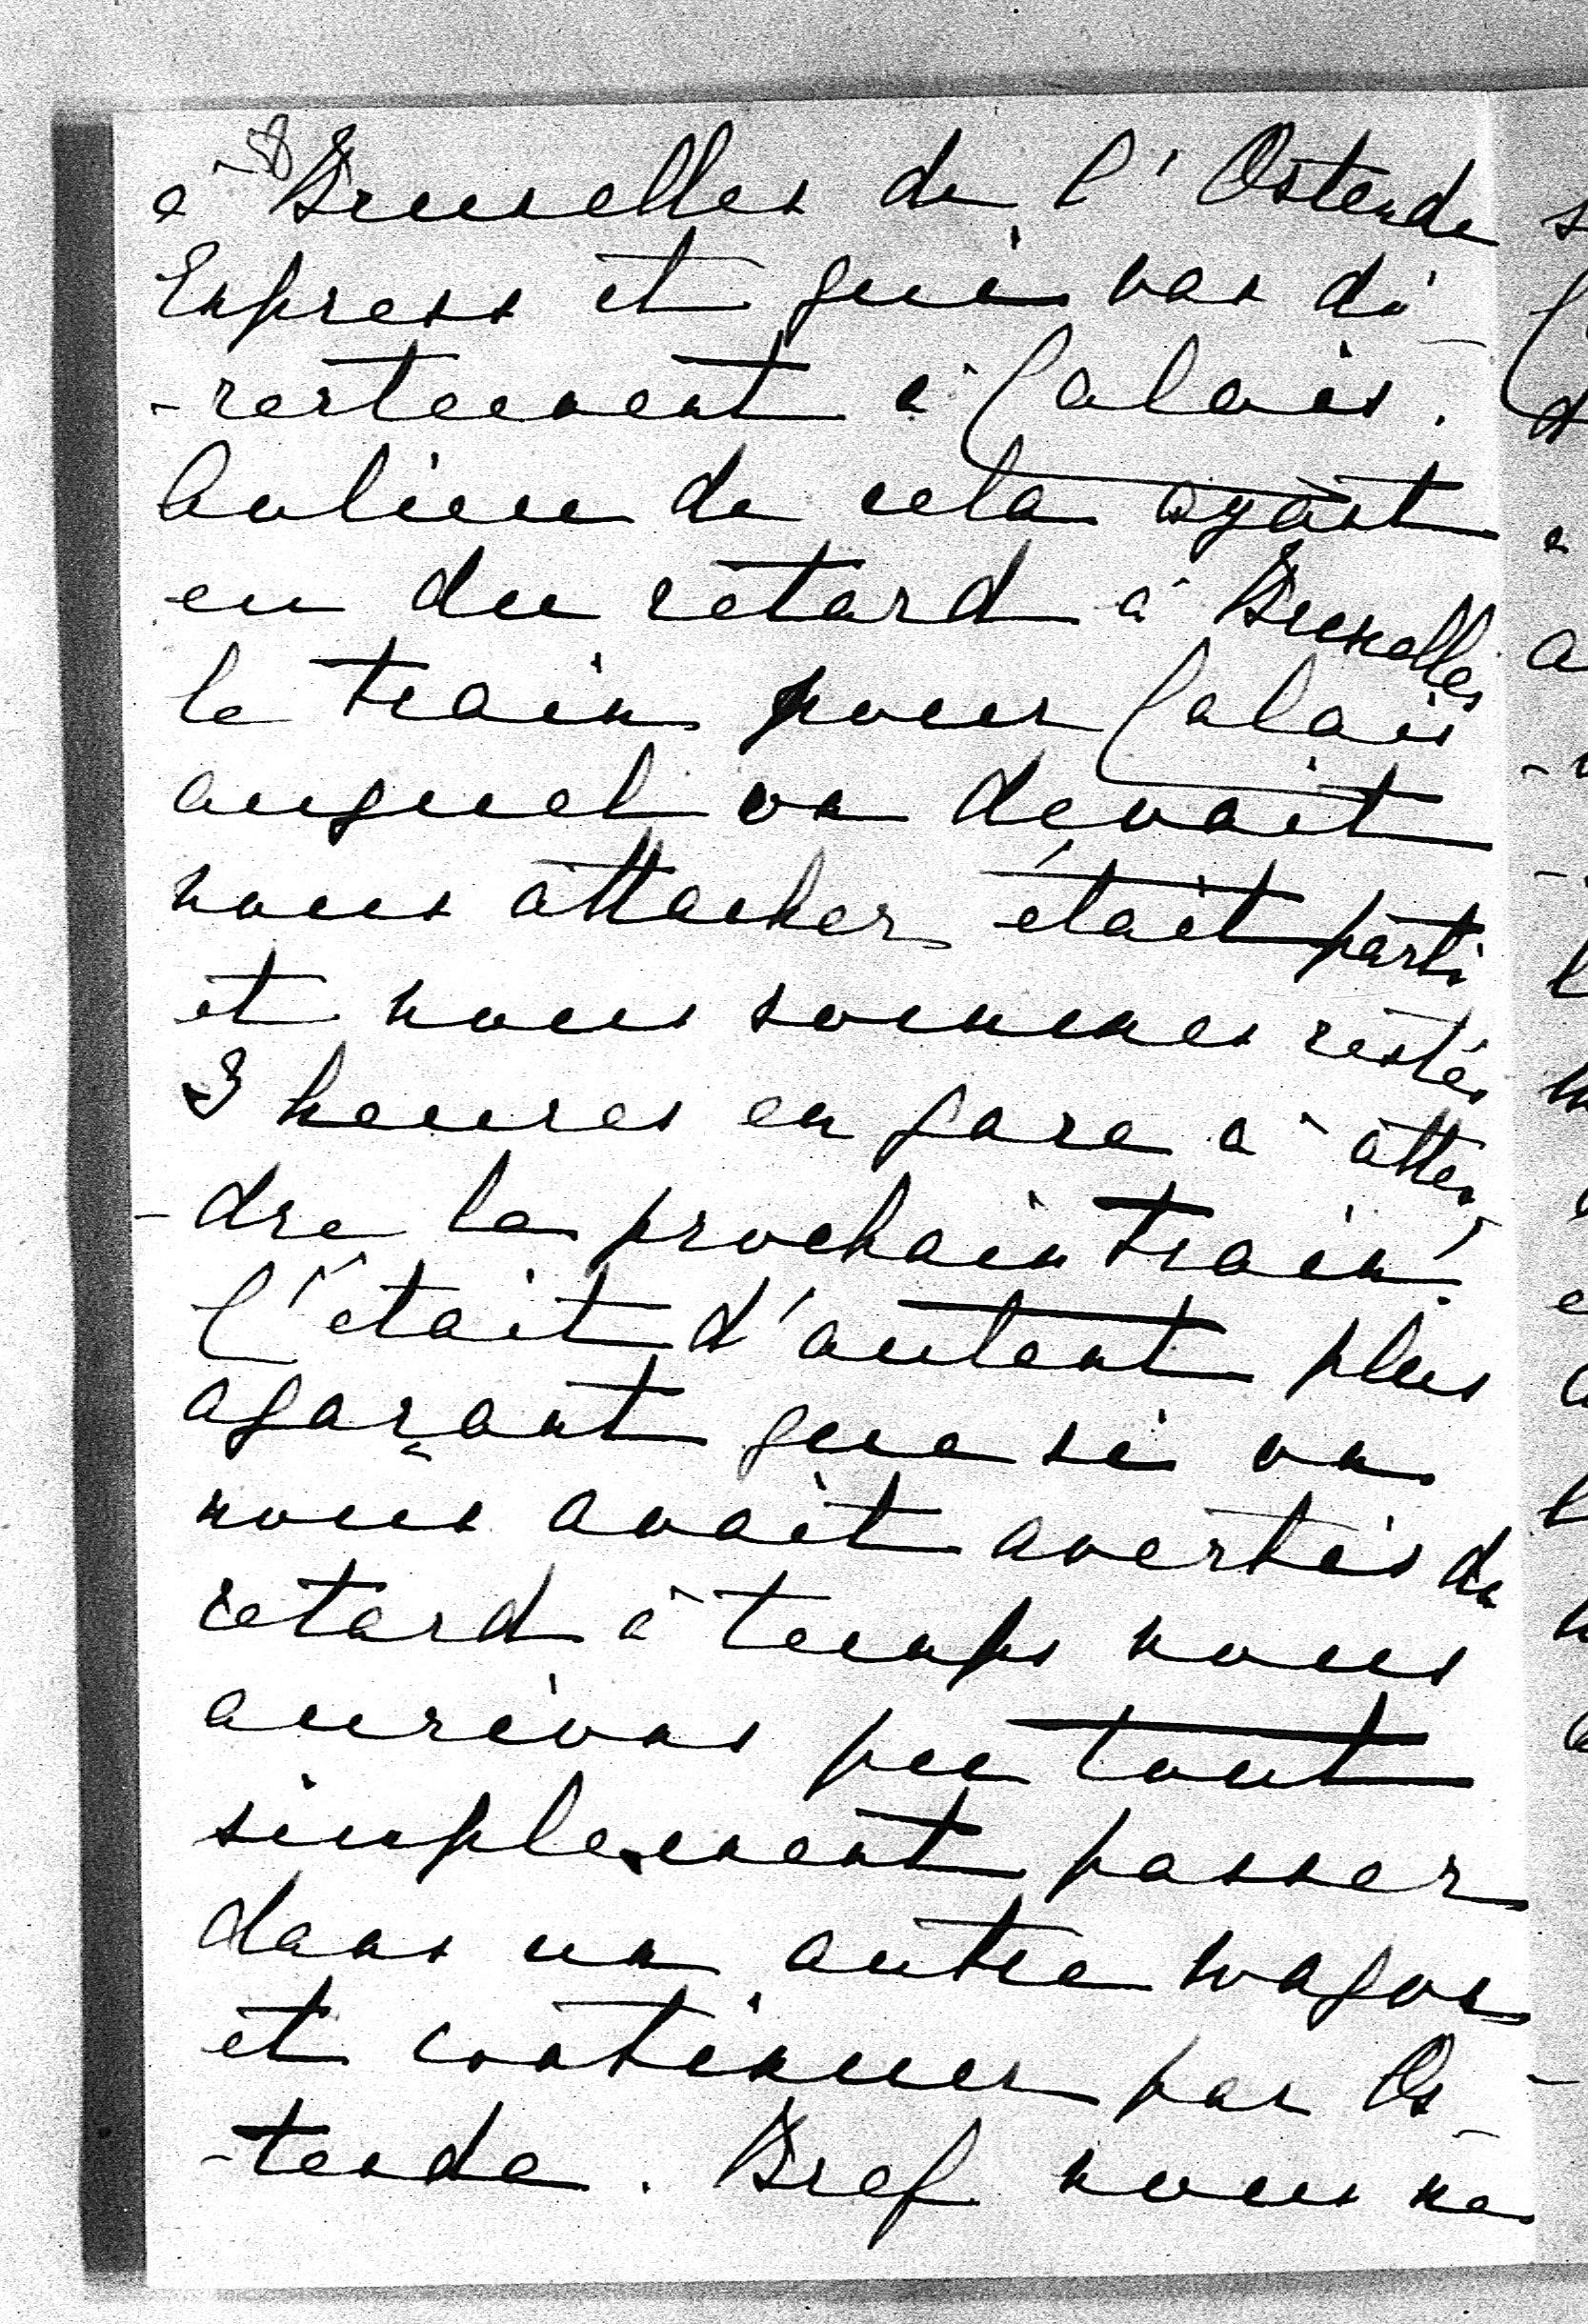 à Bruxelles de l'Ostende
Express et qui vas di-
-rectement à Calais.
Aulieu de cela ayant
eu du retard à Bruxelles
le train pour Calais
auquel on devait
nous attacher était parti
et nous sommes restés
3 heures en gare à atten-
-dre le prochain train!
C'était d'autant plus
agaçant que si on
nous avait avertis du
retard à temps nous
aurions pu tout
simplement passer
dans un autre wagon
et continuer par Os-
-tende. Bref nous ne